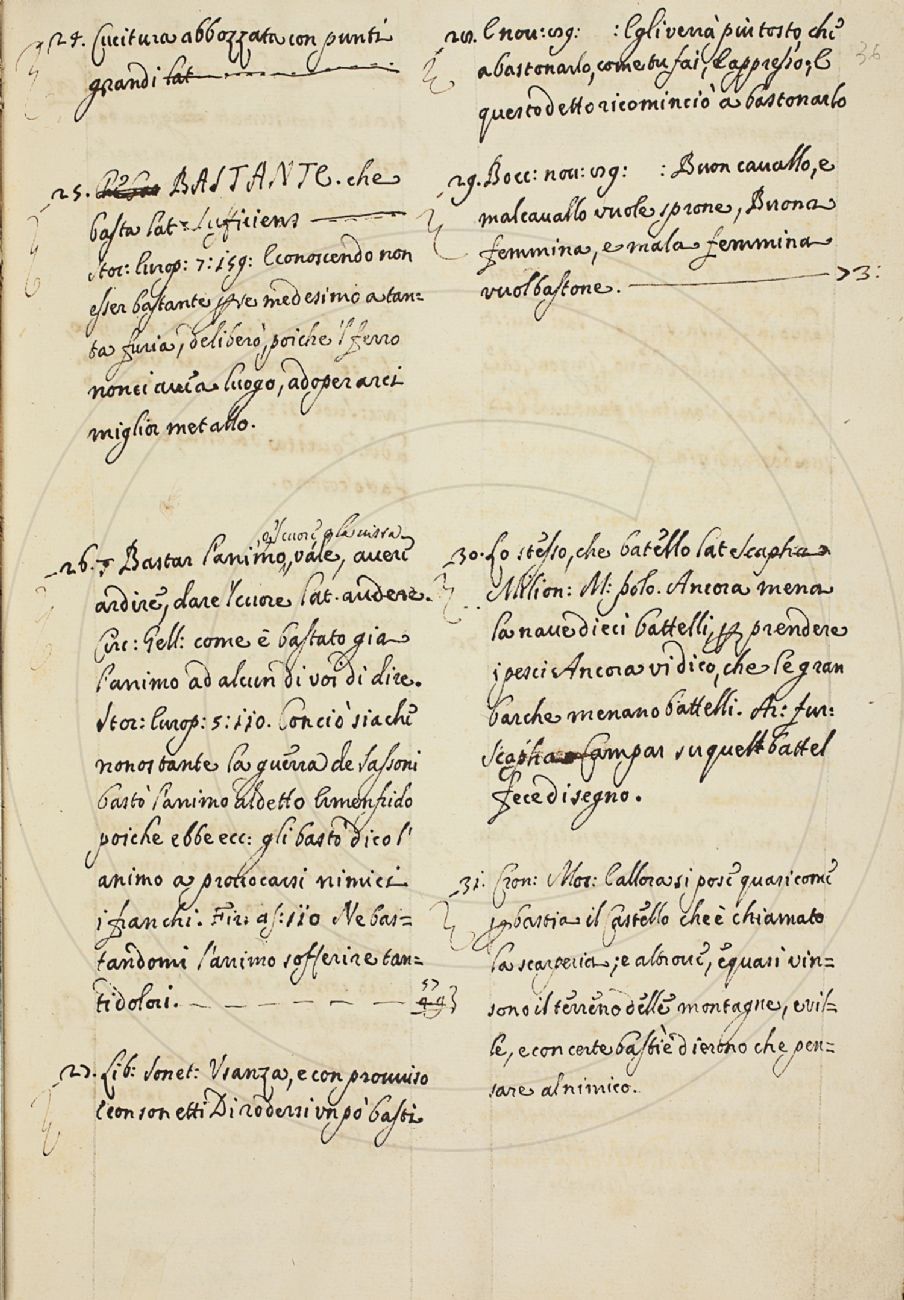 24. Cucitura abbozzata con punti
grandi lat
25. BASTANTE. che
basta lat. Sufficiens
Stor: Europ: 7: 159: E conoscendo non
esser bastante per se medesimo a tan=
ta furia, deliberò, poiche 'l ferro
non ci aveva luogo, adoperarci
miglior metallo.
e'l cuore, o la vista
26. Bastar l'animo, vale, avere
ardire, dare 'l cuore lat. audere.
Circ: Gell: come è bastato gia
l'animo ad alcun di voi di dire.
Stor: Europ: 5: 110. Conciò sia che
nonostante la guerra de Sassoni
bastò l'animo al detto Ermenfrido
poiche ebbe ecc: gli bastò dico l'
animo a provocarsi nimici
i franchi. Fir: as: 110 Ne bas=
tandomi l'animo sofferire tan=
ti dolori.
57
27. Lib: Sonet: Usanza, e con provviso
E con sonetti Di rodersi un pò basti
36
28. E nov: 69: : Egli verrà piu tosto, chi
a bastonarlo, come tu fai, E appresso; E
questo detto ricominciò a bastonarlo
29. Bocc: nov: 69: : Buon cavallo, e
mal cavallo vuole sprone, Buona
femmina, e mala femmina
vuol bastone. 73:
30. Lo stesso, che batello lat scapha
Milion: M: polo. Ancora mena
la nave dieci battelli, per prendere
i pesci Ancora vi dico, che le gran
barche menano battelli. Ar: fur:
Scapha Campar su quel battel
fece disegno.
31. Cron: Mor: E allora si pose quasi come
per bastia il Castello che è chiamato
la scarperia; e altrove, e quasi vin=
sono il terreno delle montagne, e vil=
le, e con certe bastie dierono che pen=
sare al nimico.